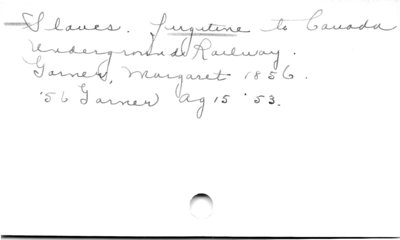 Slaves. Fugitive to Canada
Underground Railway.
Garner, Margaret 1856.
'56 Garner Ag 15 '53.